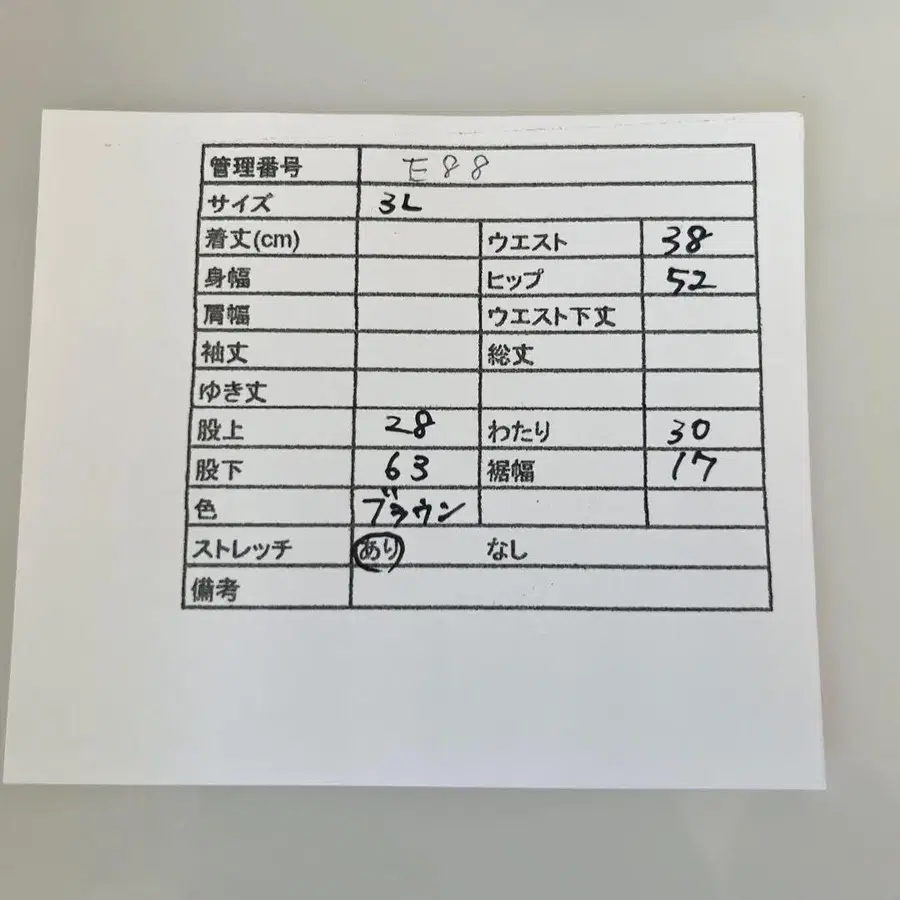 管理番号 E88
サイズ 3L
着丈(cm) ウエスト 38
身幅 ヒップ 52
肩幅 ウエスト下丈
袖丈 総丈
ゆき丈
股上 28 わたり 30
股下 63 裾幅 17
色 ブラウン
ストレッチ あり なし
備考